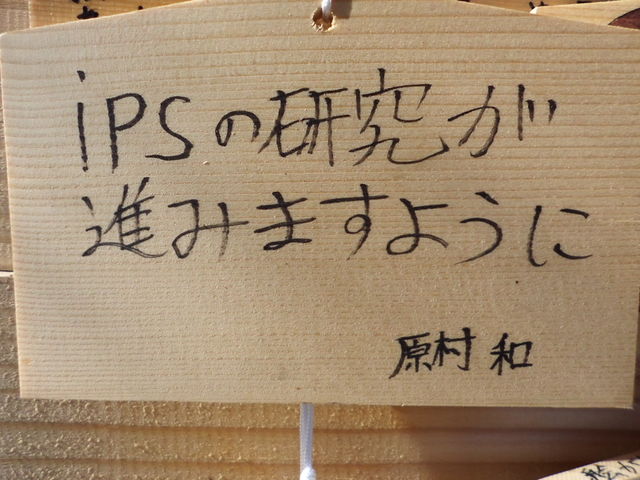 iPSの研究が
進みますように
原村 和